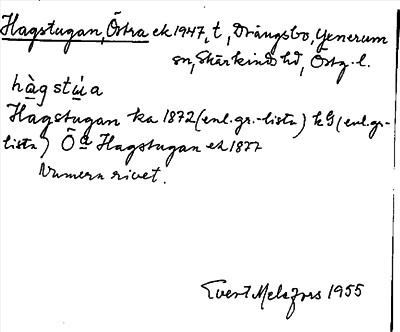 Hagstugan, Östra ek 1947, t, Drängsbo, Yenerum
sn, Skärkinds hd, Östg. l.
hàgstúa
Hagstugan ka 1872 (enl. gr.-lista) kG (enl. gr.-
lista) Öa Hagstugan ek 1877
Numera rivet.
Evert Melefors 1955